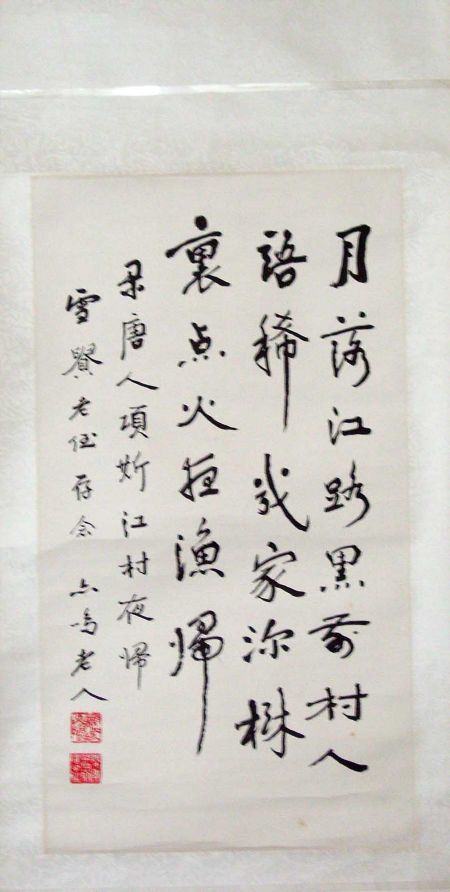 月落江路黑前村人
語稀幾家深樹
裏点火夜漁帰
录唐人項斯江村夜帰
雪賢老侄存念 老人